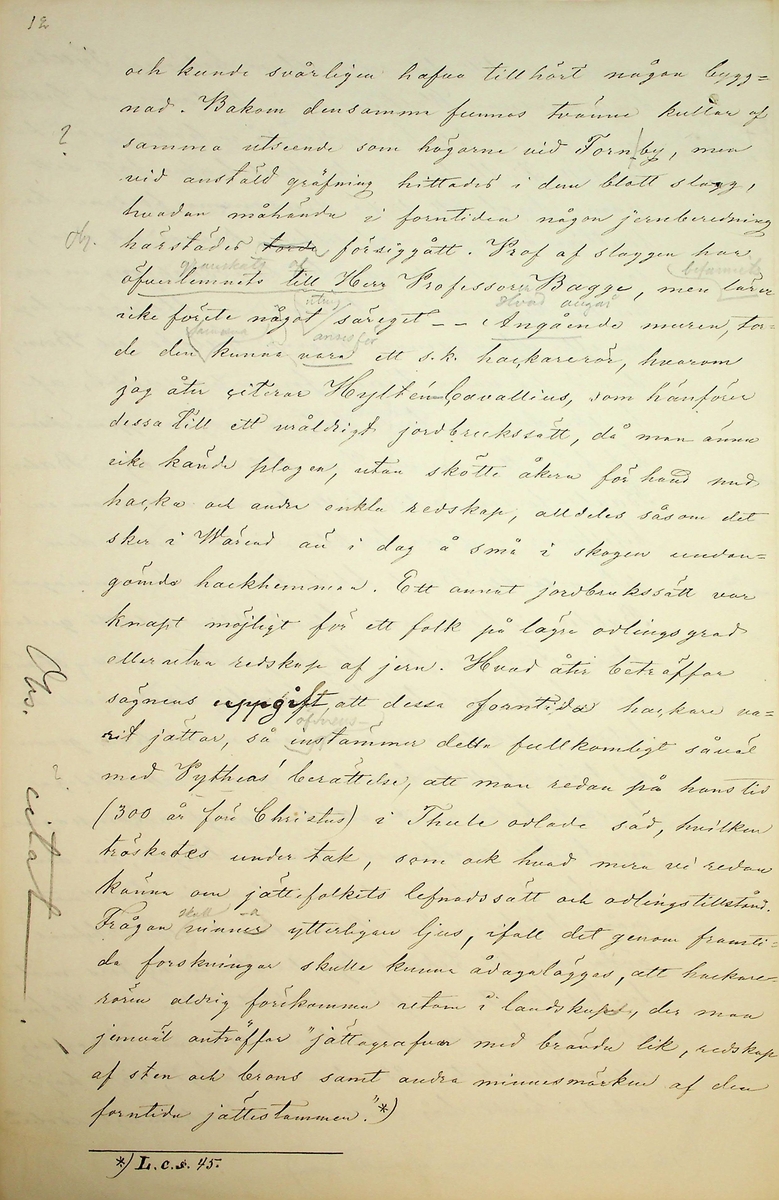 12
och kunde svårligen hafva tillhört någon bygg=
nad. Bakom densamma funnos tvänne kullar af
? samma utseende som högarne vid Forn-by, men
vid anstäld gräfning hittades i dem blott slagg,
hvadan måhända i forntiden någon jernberedning
Obj. härstädes torde försiggått. Prof af slaggen har
granskats af befunnits
öfverlemnats till Herr Professor Bagge, men lärer
utrö hvad angår
icke förete något säreget -- Angående muren, tor-
samma anses för
de den kunna vara ett s.k. hackareror, hvarom
jag åter citerar Hyltén-Cavallius, som hänförer
dessa till ett uråldrigt jordbrukssätt, då man ännu
icke kände plogen, utan skötte åkern för hand med
hacka och andra enkla redskap, alldeles såsom det
sker i Wärend än i dag å små i skogen undan-
gömda hackhemman. Ett annat jordbrukssätt var
knapt möjligt för ett folk på lägre odlingsgrad
eller utan redskap af jern. Hvad åter beträffar
sägnens uppgift, att dessa forntida hackare va=
rit jättar, så instämmer detta fullkomligt såväl
med Pytheas' berättelse, att man redan på hans tid
(300 år före Christus) i Thule odlade säd, hvilken
tröskades under tak, som ock hvad mera vi redan
känna om jättefolkets lefnadssätt och odlingstillstånd.
skall -a
Frågan vinner ytterligare ljus, ifall det genom framti-
da forskningar skulle kunna ådagaläggas, att hackare-
rören aldrig förekomma utom i landskap, der man
jemväl anträffar "jättegrafvar med brända lik, redskap
af sten och brons samt andra minnesmärken af den
forntida jättestammen."*)
Obs. citat
*) L.c.s. 45.